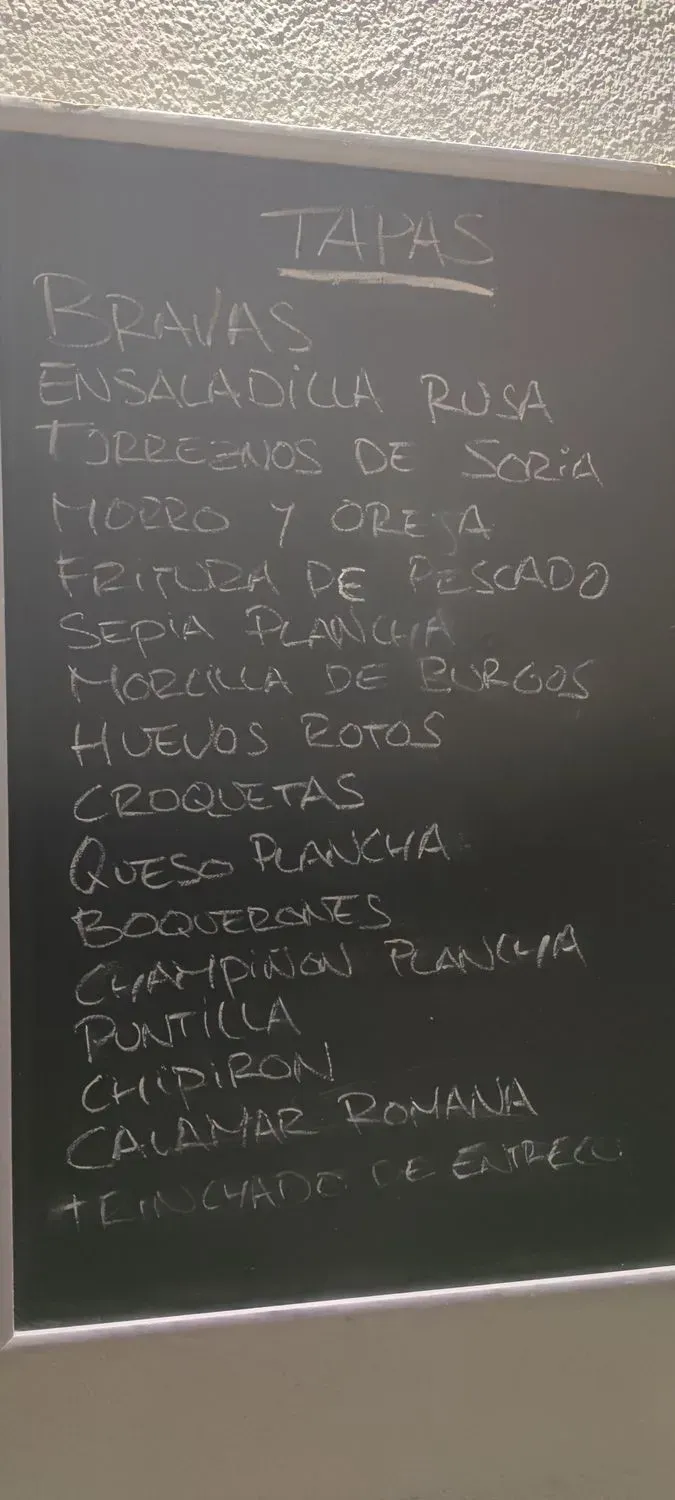 TAPAS
BRAVAS
ENSALADILLA RUSA
TORREZNOS DE SORIA
MORRO Y OREJA
FRITURA DE PESCADO
SEPIA PLANCHA
MORCILLA DE BURGOS
HUEVOS ROTOS
CROQUETAS
QUESO PLANCHA
BOQUERONES
CHAMPIÑON PLANCHA
PUNTILLA
CHIPIRON
CALAMAR ROMANA
DE